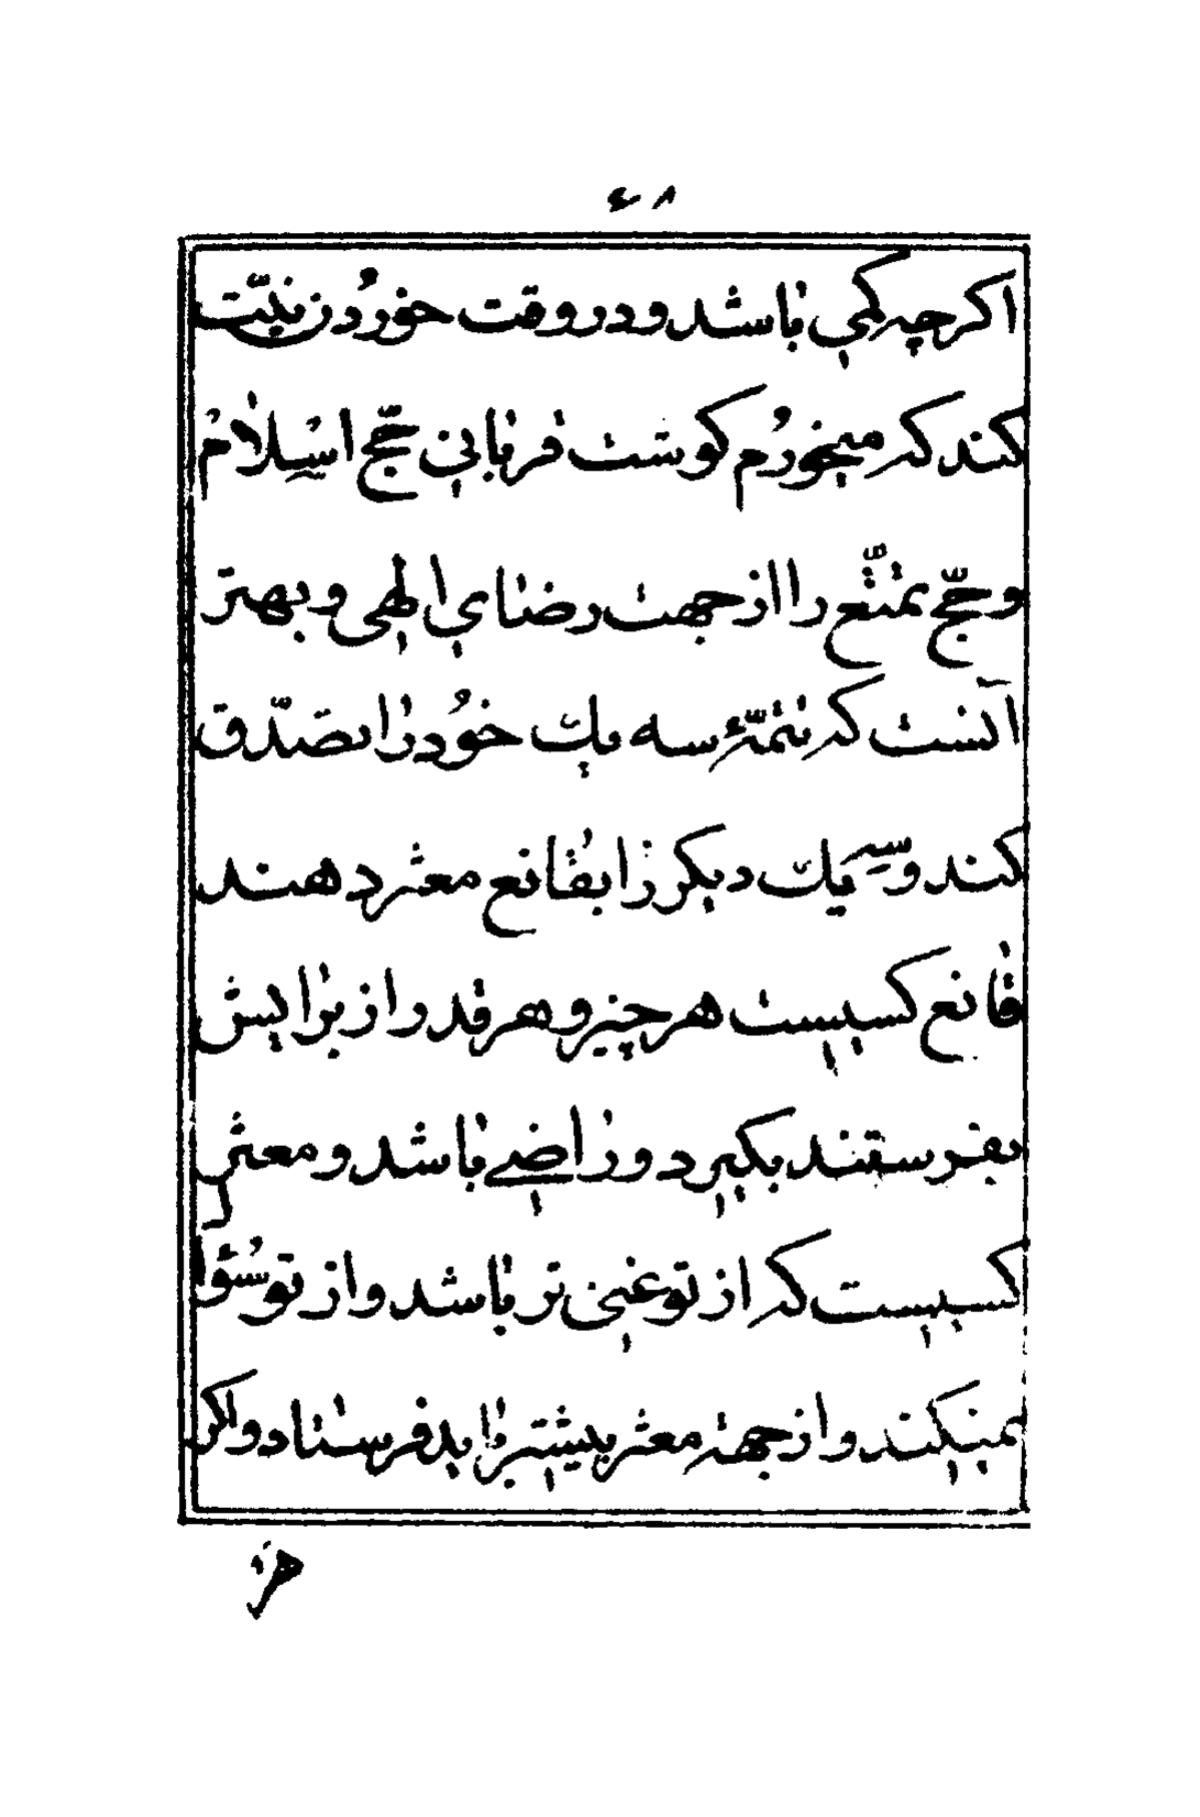 اکرچه کمی باشد و در وقت خوردن نیّت
کند که میخورم کوشت قربانی حجّ اسلام
و حجّ تمتّع را از جهت رضای الهی و بهتر
آنست که تتمّهٔ سه یك خود را تصدّق
کند و سه یك دیکر را بقانع معتر دهند
قانع کسیست هر چیز و هر قدر از برایش
بفرستند بکیرد و راضی باشد و معتر
کسیست که از تو غنی تر باشد و از تو سؤا
نمیکند و از جهة معتر بیشتر باید فرستاد و اکر
هر